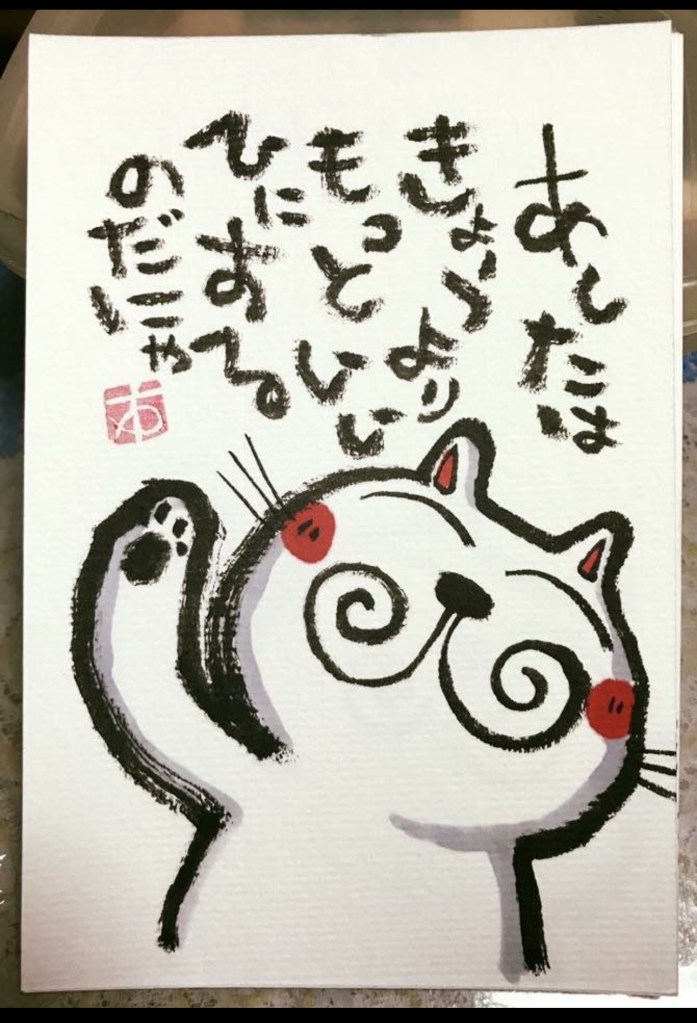 あしたは
きょうより
もっといい
ひにする
のだにゃ
あ